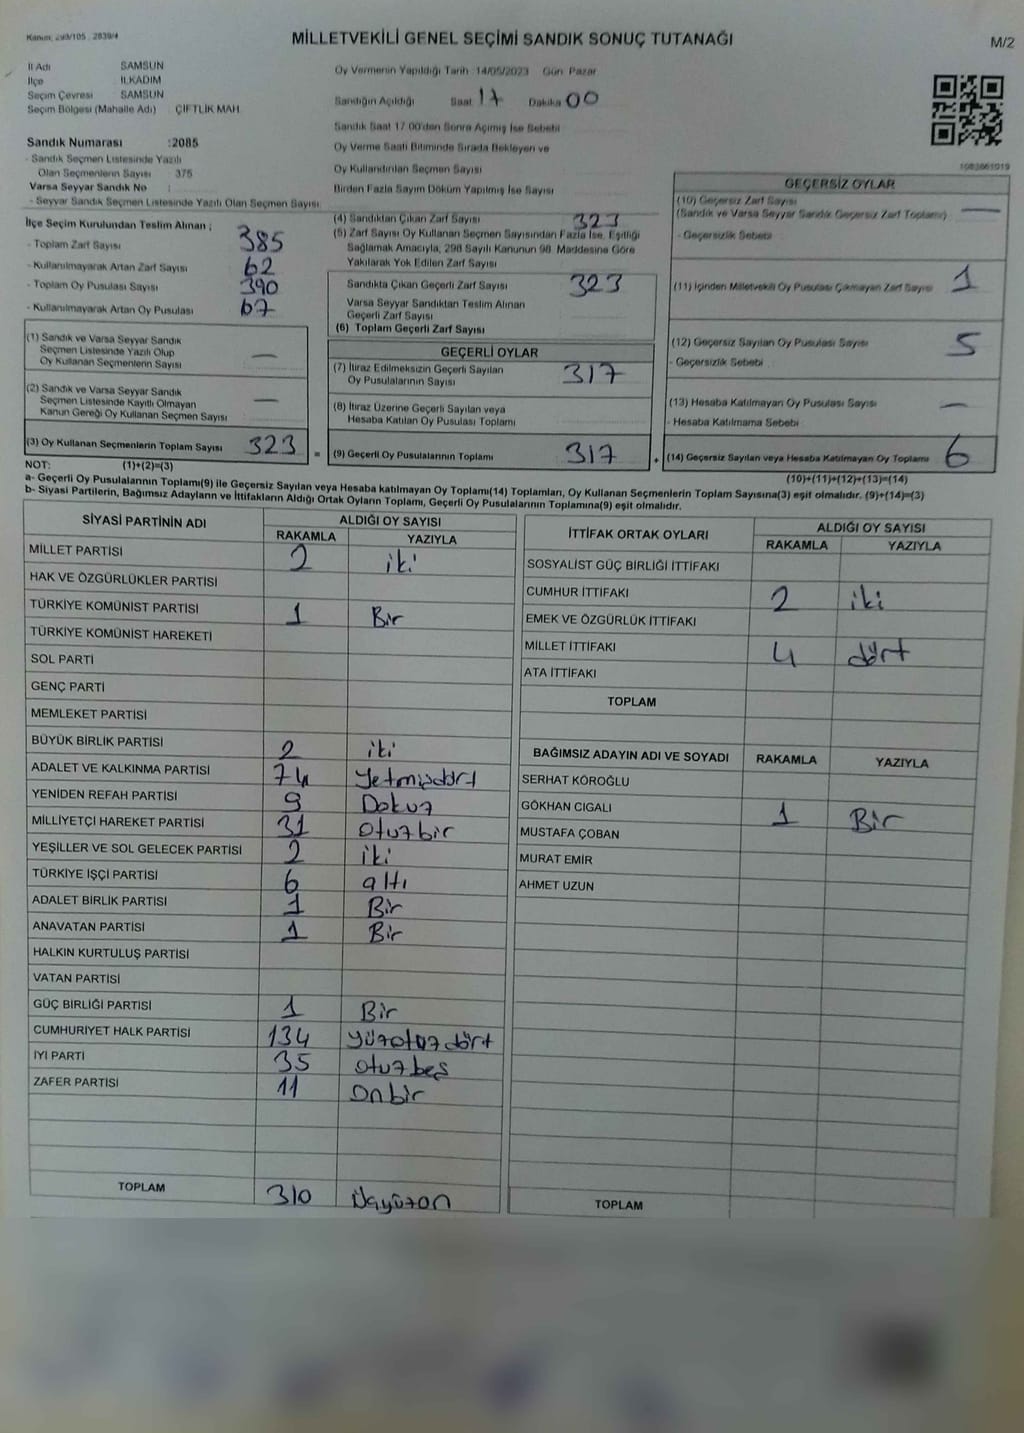 Kanun: 298/105 2839/4
MİLLETVEKİLİ GENEL SEÇİMİ SANDIK SONUÇ TUTANAĞI
M/2
İl Adı SAMSUN
İlçe İLKADIM
Seçim Çevresi SAMSUN
Seçim Bölgesi (Mahalle Adı) ÇİFTLİK MAH.
Sandık Numarası :2085
- Sandık Seçmen Listesinde Yazılı
Olan Seçmenlerin Sayısı 375
Varsa Seyyar Sandık No :
- Seyyar Sandık Seçmen Listesinde Yazılı Olan Seçmen Sayısı
Oy Vermenin Yapıldığı Tarih :14/05/2023 Gün Pazar
Sandığın Açıldığı Saat 17 Dakika 00
Sandık Saat 17.00'den Sonra Açılmış İse Sebebi
Oy Verme Saati Bitiminde Sırada Bekleyen ve
Oy Kullandırılan Seçmen Sayısı
Birden Fazla Sayım Döküm Yapılmış İse Sayısı
1083661019
İlçe Seçim Kurulundan Teslim Alınan ;
- Toplam Zarf Sayısı 385
- Kullanılmayarak Artan Zarf Sayısı 62
- Toplam Oy Pusulası Sayısı 390
- Kullanılmayarak Artan Oy Pusulası 67
(1) Sandık ve Varsa Seyyar Sandık
Seçmen Listesinde Yazılı Olup
Oy Kullanan Seçmenlerin Sayısı —
(2) Sandık ve Varsa Seyyar Sandık
Seçmen Listesinde Kayıtlı Olmayan
Kanun Gereği Oy Kullanan Seçmen Sayısı —
(3) Oy Kullanan Seçmenlerin Toplam Sayısı 323 =
(4) Sandıktan Çıkan Zarf Sayısı 323
(5) Zarf Sayısı Oy Kullanan Seçmen Sayısından Fazla İse, Eşitliği
Sağlamak Amacıyla, 298 Sayılı Kanunun 98. Maddesine Göre
Yakılarak Yok Edilen Zarf Sayısı
Sandıkta Çıkan Geçerli Zarf Sayısı 323
Varsa Seyyar Sandıktan Teslim Alınan
Geçerli Zarf Sayısı
(6) Toplam Geçerli Zarf Sayısı
GEÇERLİ OYLAR
(7) İtiraz Edilmeksizin Geçerli Sayılan
Oy Pusulalarının Sayısı 317
(8) İtiraz Üzerine Geçerli Sayılan veya
Hesaba Katılan Oy Pusulası Toplamı
(9) Geçerli Oy Pusulalarının Toplamı 317 +
GEÇERSİZ OYLAR
(10) Geçersiz Zarf Sayısı
(Sandık ve Varsa Seyyar Sandık Geçersiz Zarf Toplamı) —
- Geçersizlik Sebebi
(11) İçinden Milletvekili Oy Pusulası Çıkmayan Zarf Sayısı 1
(12) Geçersiz Sayılan Oy Pusulası Sayısı 5
- Geçersizlik Sebebi
(13) Hesaba Katılmayan Oy Pusulası Sayısı —
- Hesaba Katılmama Sebebi
(14) Geçersiz Sayılan veya Hesaba Katılmayan Oy Toplamı 6
NOT: (1)+(2)=(3) (10)+(11)+(12)+(13)=(14)
a- Geçerli Oy Pusulalarının Toplamı(9) ile Geçersiz Sayılan veya Hesaba katılmayan Oy Toplamı(14) Toplamları, Oy Kullanan Seçmenlerin Toplam Sayısına(3) eşit olmalıdır. (9)+(14)=(3)
b- Siyasi Partilerin, Bağımsız Adayların ve İttifakların Aldığı Ortak Oyların Toplamı, Geçerli Oy Pusulalarının Toplamına(9) eşit olmalıdır.
SİYASİ PARTİNİN ADI ALDIĞI OY SAYISI
RAKAMLA YAZIYLA
MİLLET PARTİSİ 2 iki
HAK VE ÖZGÜRLÜKLER PARTİSİ
TÜRKİYE KOMÜNİST PARTİSİ 1 Bir
TÜRKİYE KOMÜNİST HAREKETİ
SOL PARTİ
GENÇ PARTİ
MEMLEKET PARTİSİ
BÜYÜK BİRLİK PARTİSİ 2 iki
ADALET VE KALKINMA PARTİSİ 74 Yetmişdört
YENİDEN REFAH PARTİSİ 9 Dokuz
MİLLİYETÇİ HAREKET PARTİSİ 31 otuzbir
YEŞİLLER VE SOL GELECEK PARTİSİ 2 iki
TÜRKİYE İŞÇİ PARTİSİ 6 altı
ADALET BİRLİK PARTİSİ 1 Bir
ANAVATAN PARTİSİ 1 Bir
HALKIN KURTULUŞ PARTİSİ
VATAN PARTİSİ
GÜÇ BİRLİĞİ PARTİSİ 1 Bir
CUMHURİYET HALK PARTİSİ 134 yüzotuzdört
İYİ PARTİ 35 otuzbeş
ZAFER PARTİSİ 11 onbir
TOPLAM 310 üçyüzon
İTTİFAK ORTAK OYLARI ALDIĞI OY SAYISI
RAKAMLA YAZIYLA
SOSYALİST GÜÇ BİRLİĞİ İTTİFAKI
CUMHUR İTTİFAKI 2 iki
EMEK VE ÖZGÜRLÜK İTTİFAKI
MİLLET İTTİFAKI 4 dört
ATA İTTİFAKI
TOPLAM
BAĞIMSIZ ADAYIN ADI VE SOYADI RAKAMLA YAZIYLA
SERHAT KÖROĞLU
GÖKHAN CIGALI 1 Bir
MUSTAFA ÇOBAN
MURAT EMİR
AHMET UZUN
TOPLAM